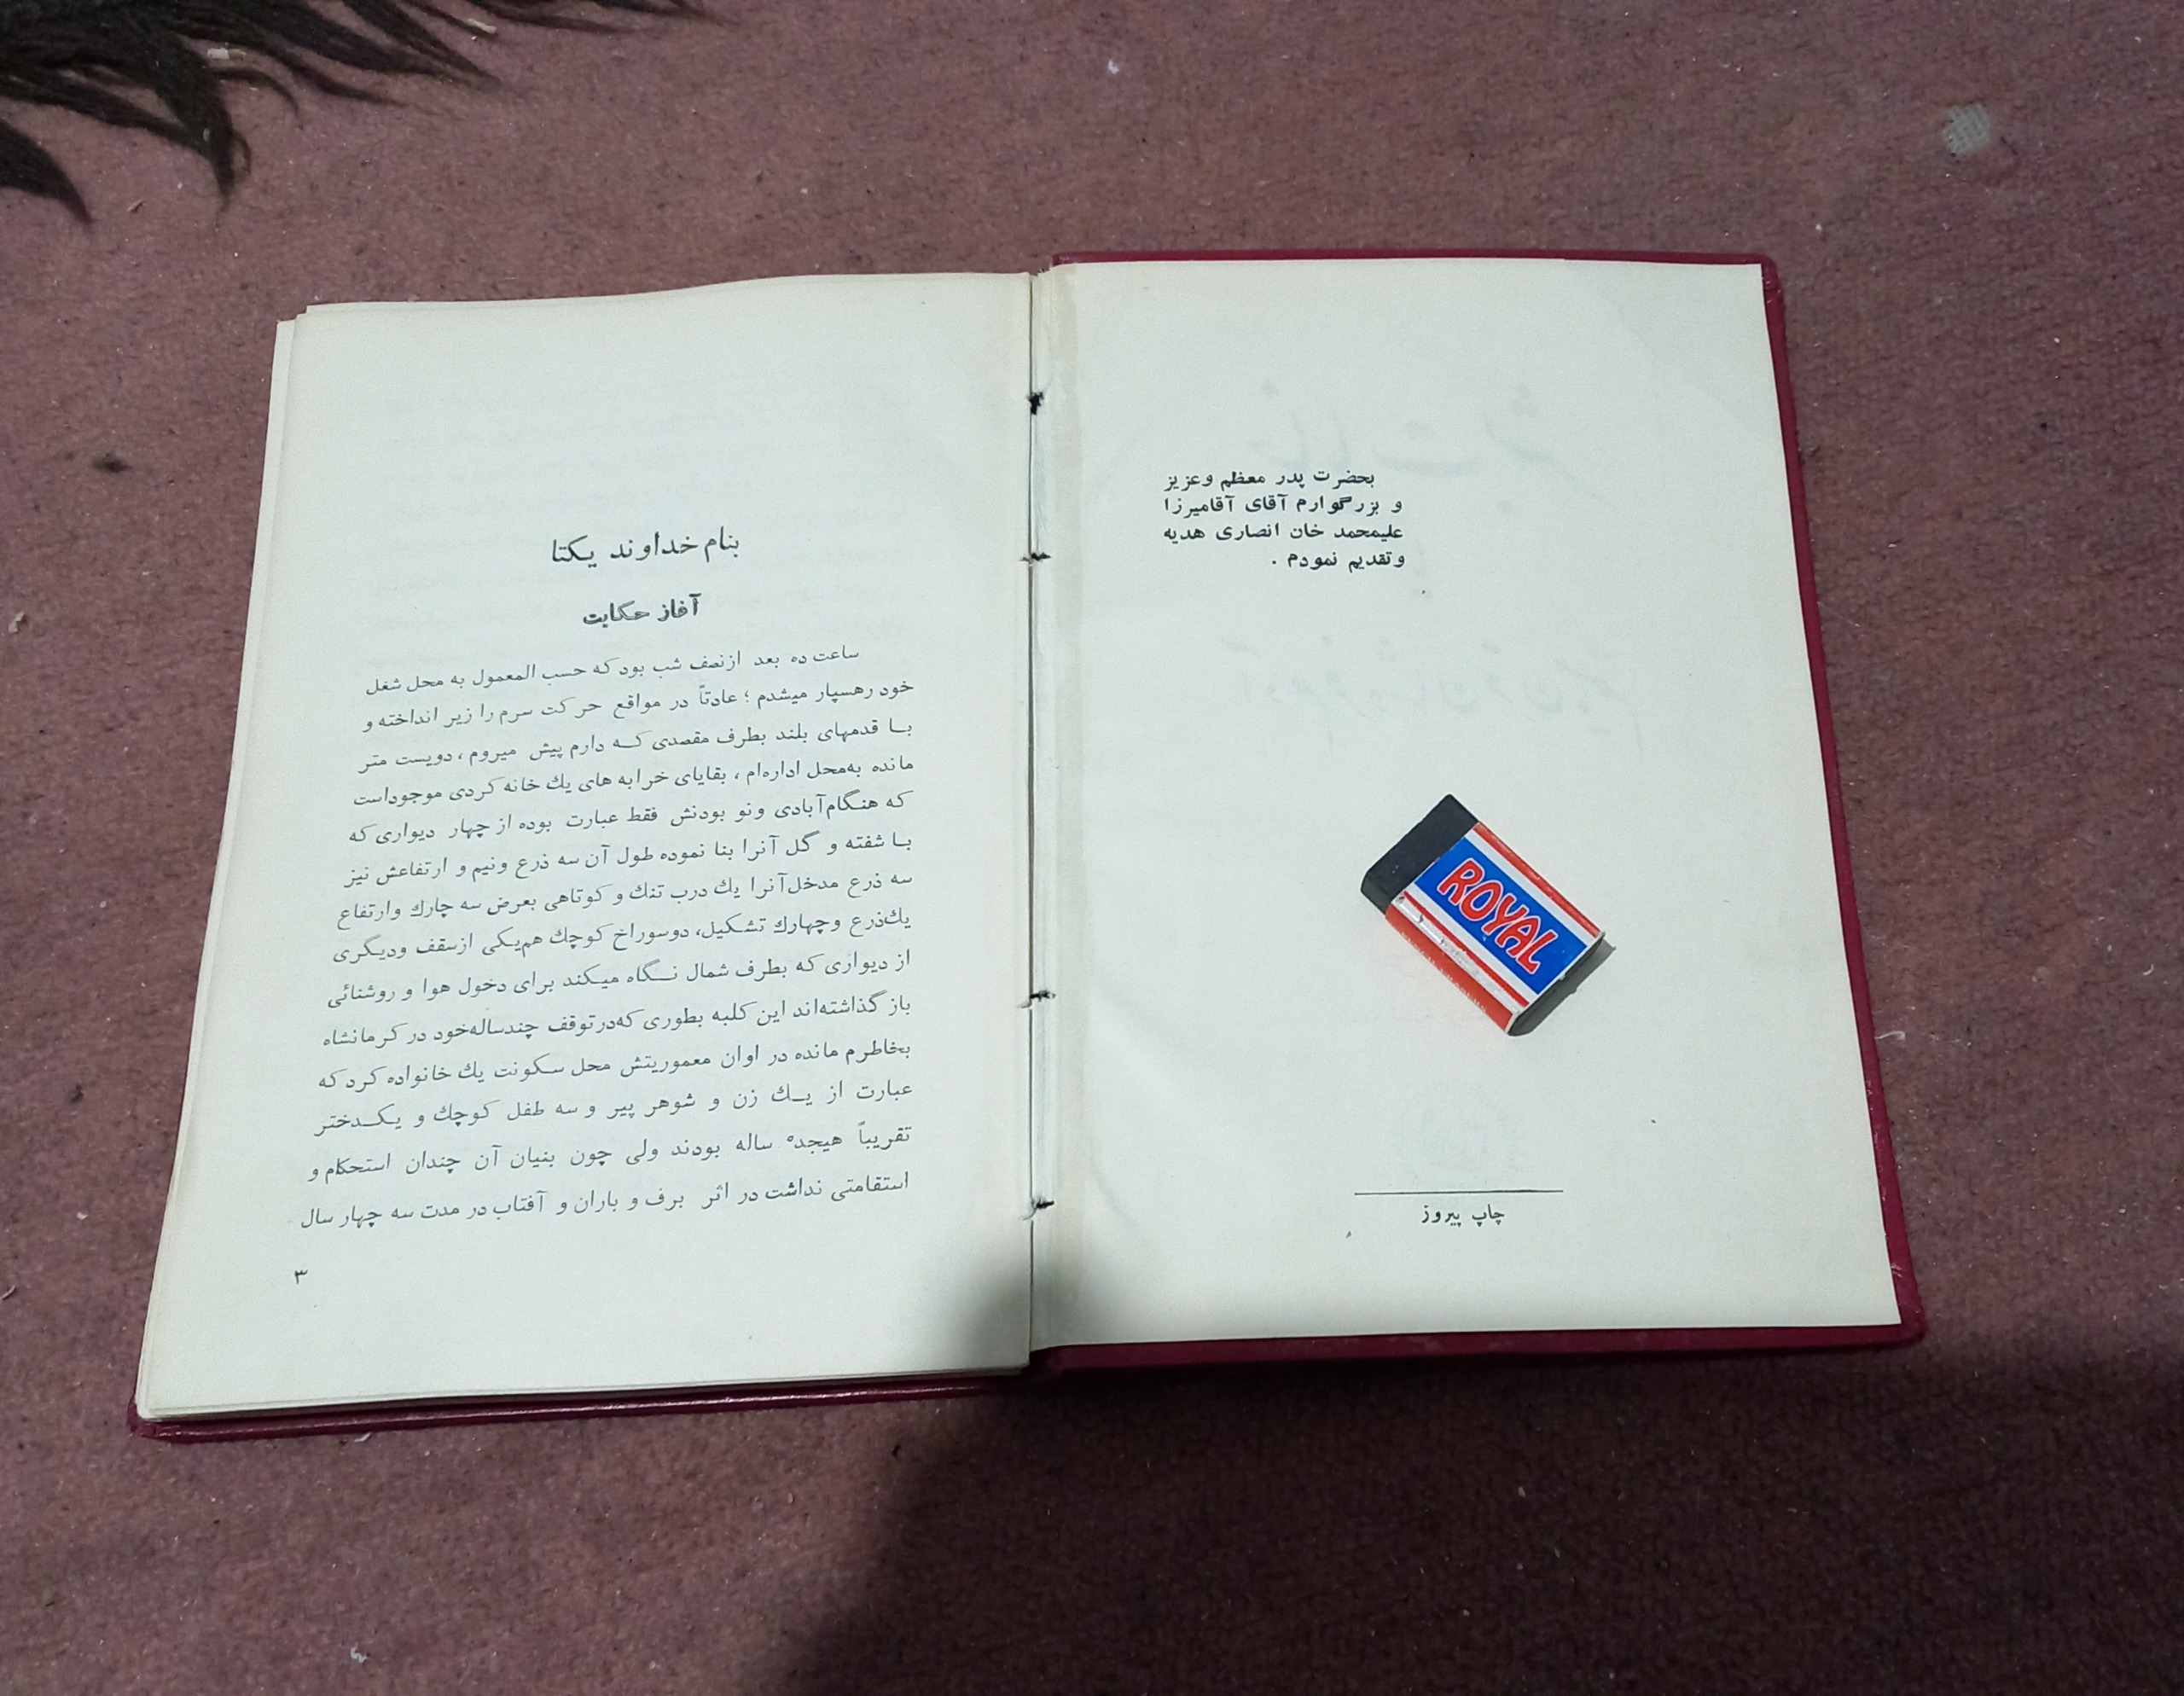 بحضرت پدر معظم وعزیز
و بزرگوارم آقای آقامیرزا
علیمحمد خان انصاری هدیه
وتقدیم نمودم .
ROYAL
چاپ پیروز
بنام خداوند یکتا
آغاز حکایت
ساعت ده بعد ازنصف شب بود که حسب المعمول به محل شغل
خود رهسپار میشدم ؛ عادتاً در مواقع حرکت سرم را زیر انداخته و
بــا قدمهای بلند بطرف مقصدی کــه دارم پیش میروم ، دویست متر
مانده به‌محل اداره‌ام ، بقایای خرابه های یك خانه کردی موجوداست
که هنگام‌آبادی ونو بودنش فقط عبارت بوده از چهار دیواری که
بــا شفته و گل آنرا بنا نموده طول آن سه ذرع ونیم و ارتفاعش نیز
سه ذرع مدخل‌آنرا یك درب تنك و کوتاهی بعرض سه چارك وارتفاع
یك‌ذرع وچهارك تشکیل، دوسوراخ کوچك هم‌یکی ازسقف ودیگری
از دیواری که بطرف شمال نــگاه میکند برای دخول هوا و روشنائی
باز گذاشته‌اند این کلبه بطوری که‌درتوقف چندساله‌خود در کرمانشاه
بخاطرم مانده در اوان معموریتش محل سکونت یك خانواده کرد که
عبارت از یــك زن و شوهر پیر و سه طفل کوچك و یکــدختر
تقریباً هیجده ساله بودند ولی چون بنیان آن چندان استحکام و
استقامتی نداشت در اثر برف و باران و آفتاب در مدت سه چهار سال
۳